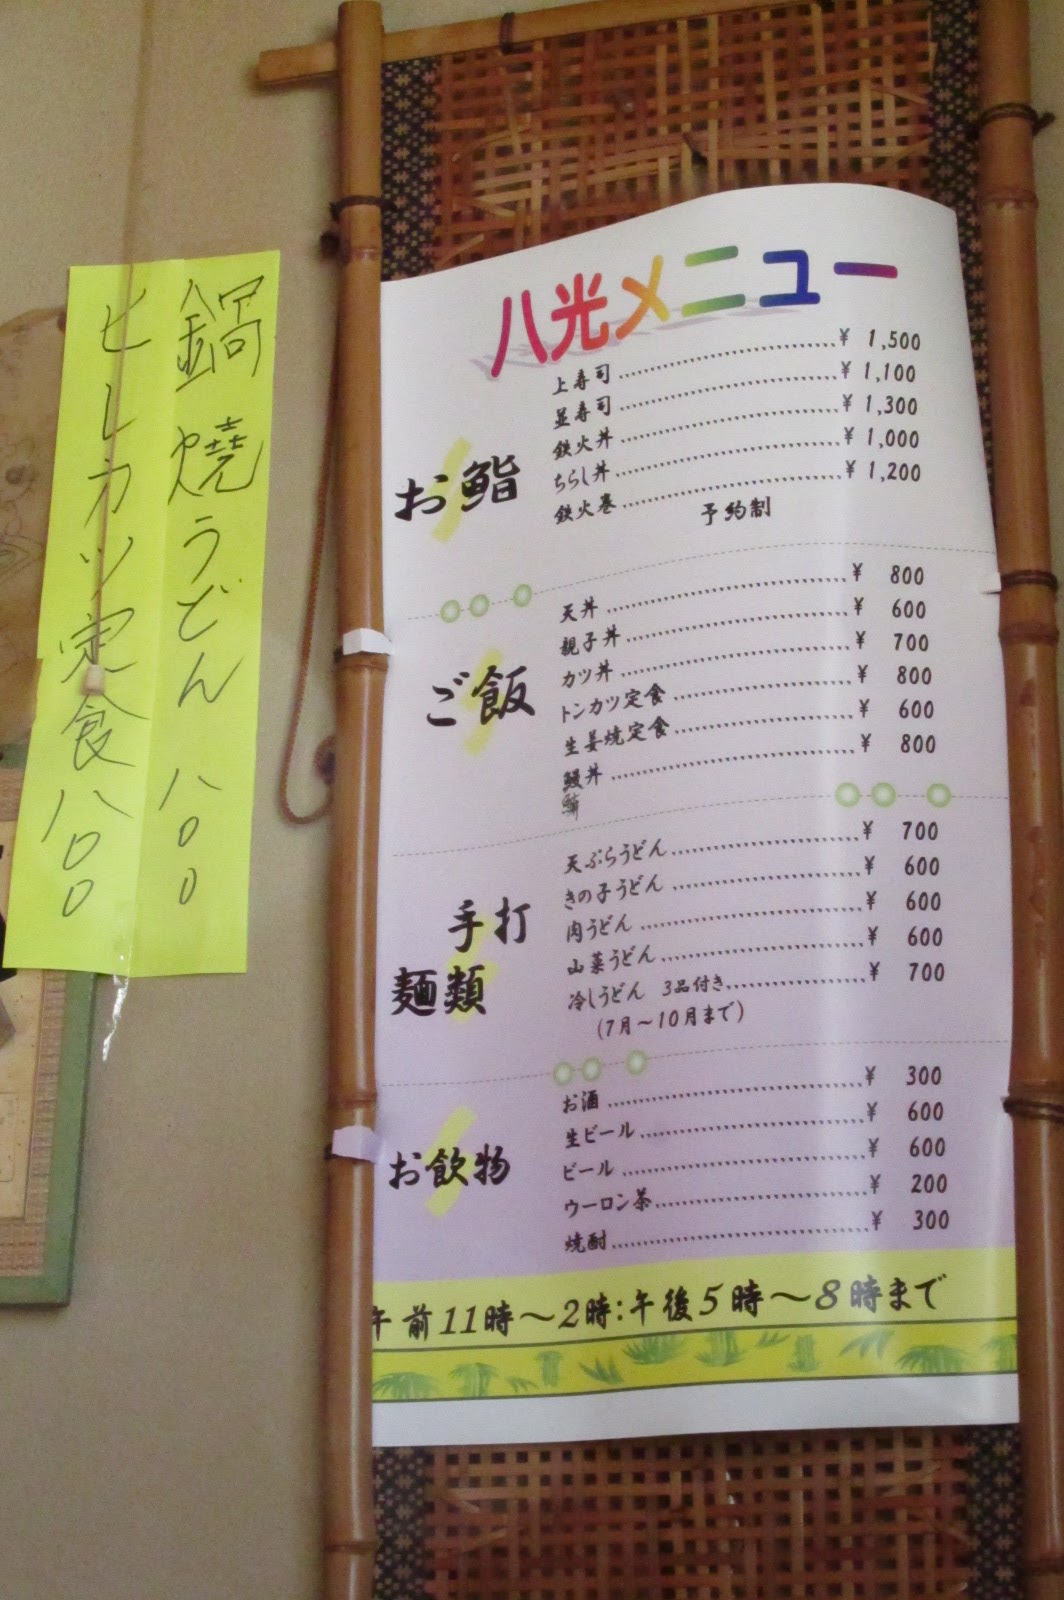 鍋焼うどん 八〇〇
ヒレカツ定食 八〇〇
八光メニュー
お鮨
上寿司 ¥ 1,500
並寿司 ¥ 1,100
鉄火丼 ¥ 1,300
ちらし丼 ¥ 1,000
鉄火巻 ¥ 1,200
予約制
ご飯
天丼 ¥ 800
親子丼 ¥ 600
カツ丼 ¥ 700
トンカツ定食 ¥ 800
生姜焼定食 ¥ 600
鰻丼 ¥ 800
手打
麺類
天ぷらうどん ¥ 700
きの子うどん ¥ 600
肉うどん ¥ 600
山菜うどん ¥ 600
冷しうどん 3品付き ¥ 700
(7月～10月まで)
お飲物
お酒 ¥ 300
生ビール ¥ 600
ビール ¥ 600
ウーロン茶 ¥ 200
焼酎 ¥ 300
午前11時～2時:午後5時～8時まで